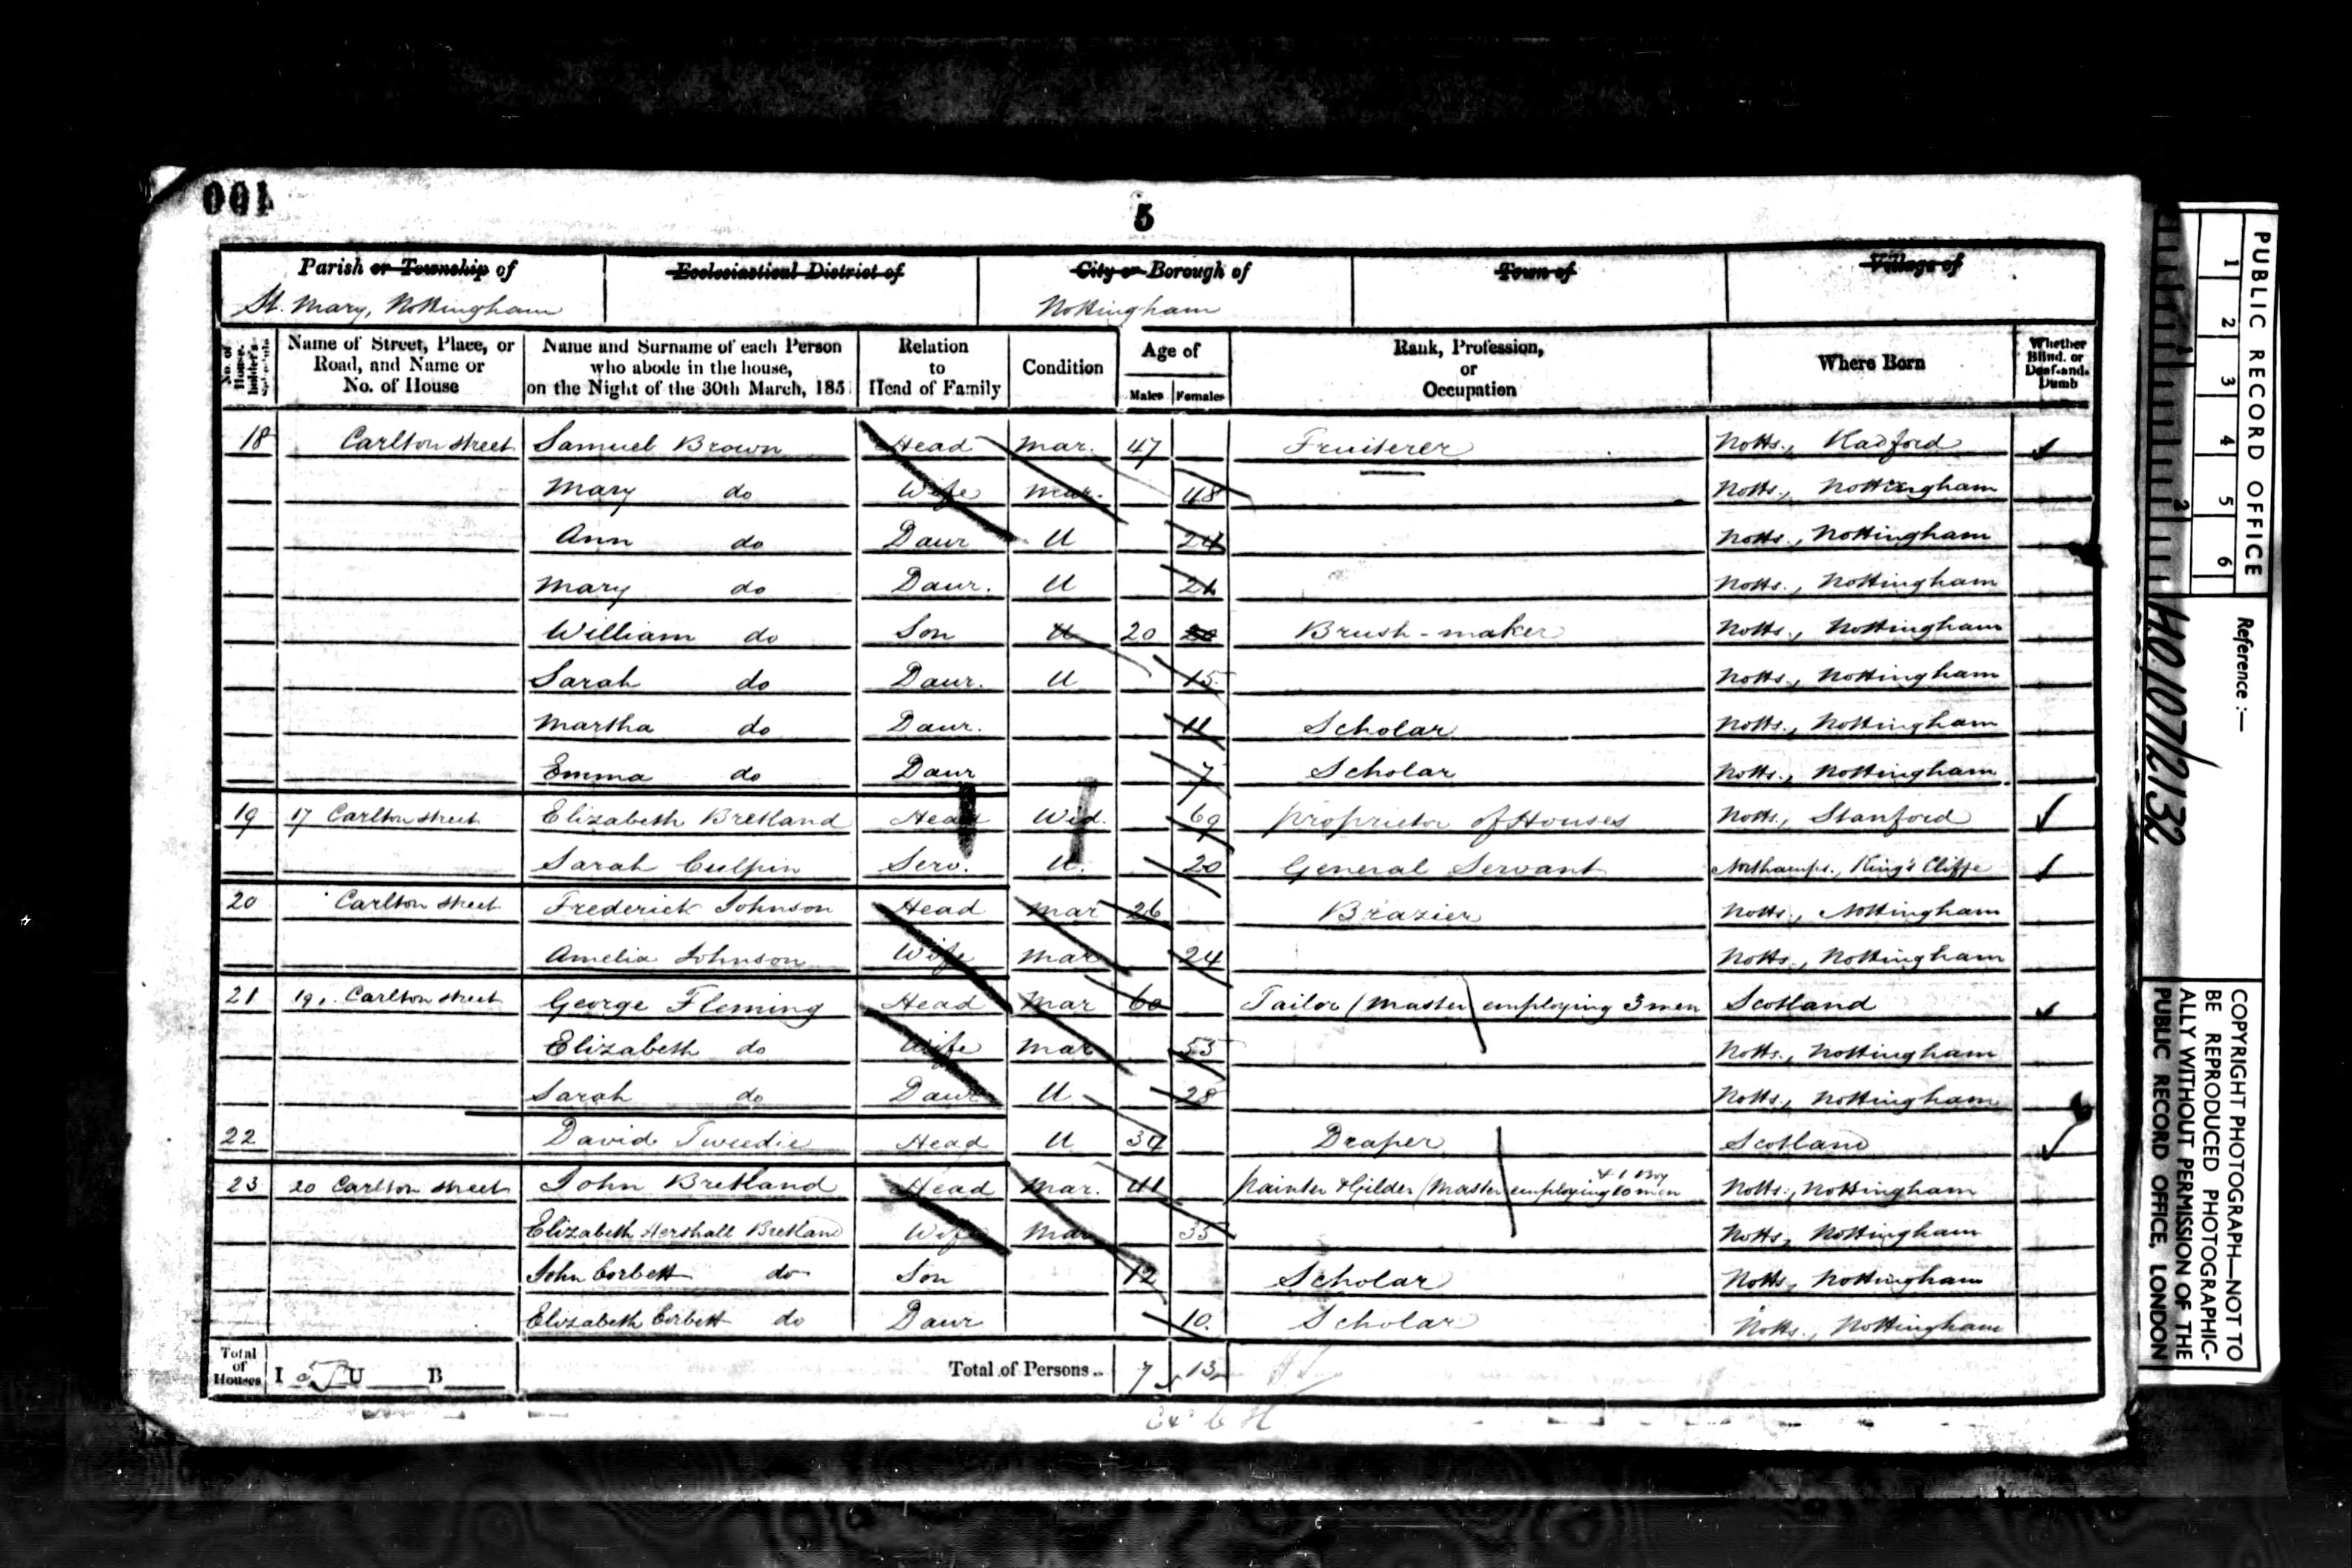 5
Parish or Township of Ecclesiastical District of City or Borough of Town of Village of
St. Mary, Nottingham Nottingham
No. of House- holder's Name of Street, Place, or Road, and Name or No. of House Name and Surname of each Person who abode in the house, on the Night of the 30th March, 185 Relation to Head of Family Condition Age of Males Females Rank, Profession, or Occupation Where Born Whether Blind, or Deaf-and-Dumb
18 Carlton street Samuel Brown Head Mar. 47 Fruiterer Notts., Radford
Mary do Wife Mar. 48 Notts., Nottingham
Ann do Daur U 24 Notts., Nottingham
Mary do Daur. U Notts., Nottingham
William do Son U 20 Brush-maker Notts., Nottingham
Sarah do Daur. U 15 Notts., Nottingham
Martha do Daur. 11 Scholar Notts., Nottingham
Emma do Daur 7 Scholar Notts., Nottingham.
19 17 Carlton street Elizabeth Bretland Head Wid. 69 proprietor of Houses Notts., Stanford
Sarah Culpin Serv. U. 20 General Servant Northamps., King's Cliffe
20 Carlton street Frederick Johnson Head Mar 26 Brazier Notts., Nottingham
Amelia Johnson Wife Mar 24 Notts., Nottingham
21 19, Carlton street George Fleming Head Mar 60 Tailor (Master) employing 3 men Scotland
Elizabeth do Wife Mar 55 Notts., Nottingham
Sarah do Daur U 28 Notts., Nottingham
22 David Tweedie Head U Draper Scotland
23 20 Carlton street John Bretland Head Mar. 41 Painter & Gilder (Master employing 10 men & 1 Boy Notts., Nottingham
Elizabeth Hershall Bretland Wife Mar 35 Notts., Nottingham
John Corbett do Son 12 Scholar Notts., Nottingham
Elizabeth Corbett do Daur 10. Scholar Notts., Nottingham
Total of Houses I U B Total of Persons 7 13
PUBLIC RECORD OFFICE
1 2 3 4 5 6
Reference :-
HO 107/2132
COPYRIGHT PHOTOGRAPH—NOT TO BE REPRODUCED PHOTOGRAPHIC-
ALLY WITHOUT PERMISSION OF THE
PUBLIC RECORD OFFICE, LONDON